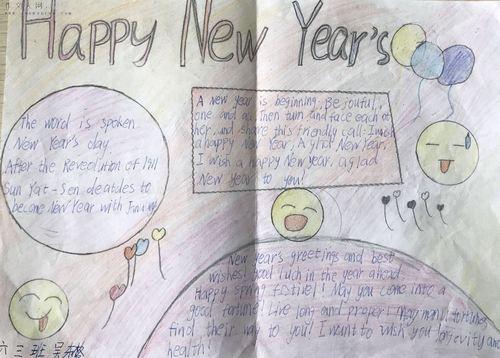 Happy New Year's
The word is spoken
New Year's day
After the Reveolution of 1911
Sun Yat-Sen deatdes to
become New Year with
A New year is beginning. Be joyful,
one and all. Then turn and face each ot
her, and share this friendly call: I wish
a happy New Year, A glad New Year,
I wish a happy New year, a glad
New year to you!
New year's greetings and best
wishes! Good luch in the year ahead
Happy spring festivel! May you come into a
good fortune! Live long and proper! May many fortunes
find their way to you! I want to wish you longevity and
health!
六三班 吴